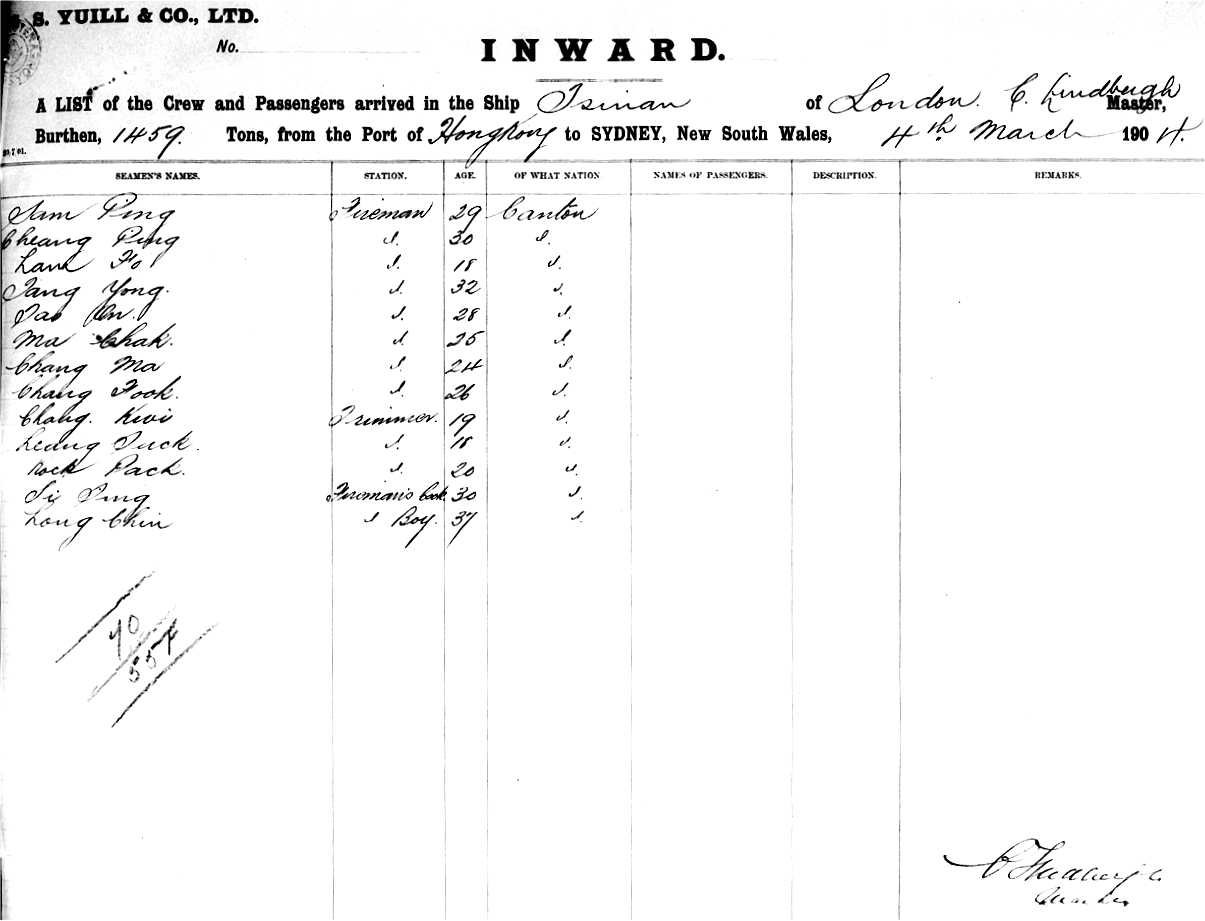 S. YUILL & CO., LTD.
No.
INWARD.
A LIST of the Crew and Passengers arrived in the Ship Tsinan of London. C. Lindbergh Master,
Burthen, 1459. Tons, from the Port of Hongkong to SYDNEY, New South Wales, 4th March 1904.
SEAMEN'S NAMES. STATION. AGE. OF WHAT NATION NAMES OF PASSENGERS. DESCRIPTION. REMARKS.
Sam Ping Fireman 29 Canton
Cheang Ping d. 30 d.
Lam Fo d. 18 d.
Tang Yong. d. 32 d.
d. 28 d.
Ma Chak. d. 25 d.
Chang Ma d. 24 d.
Chang Fook. d. 26 d.
Chang. Kwi Trimmer. 19 d.
Leang Tuck. d. 18 d.
Rock Pack. d. 20 d.
Si Ping Fireman's Cook 30 d.
Long Chin d Boy. 37 d.
70
557
C Lindbergh
Master